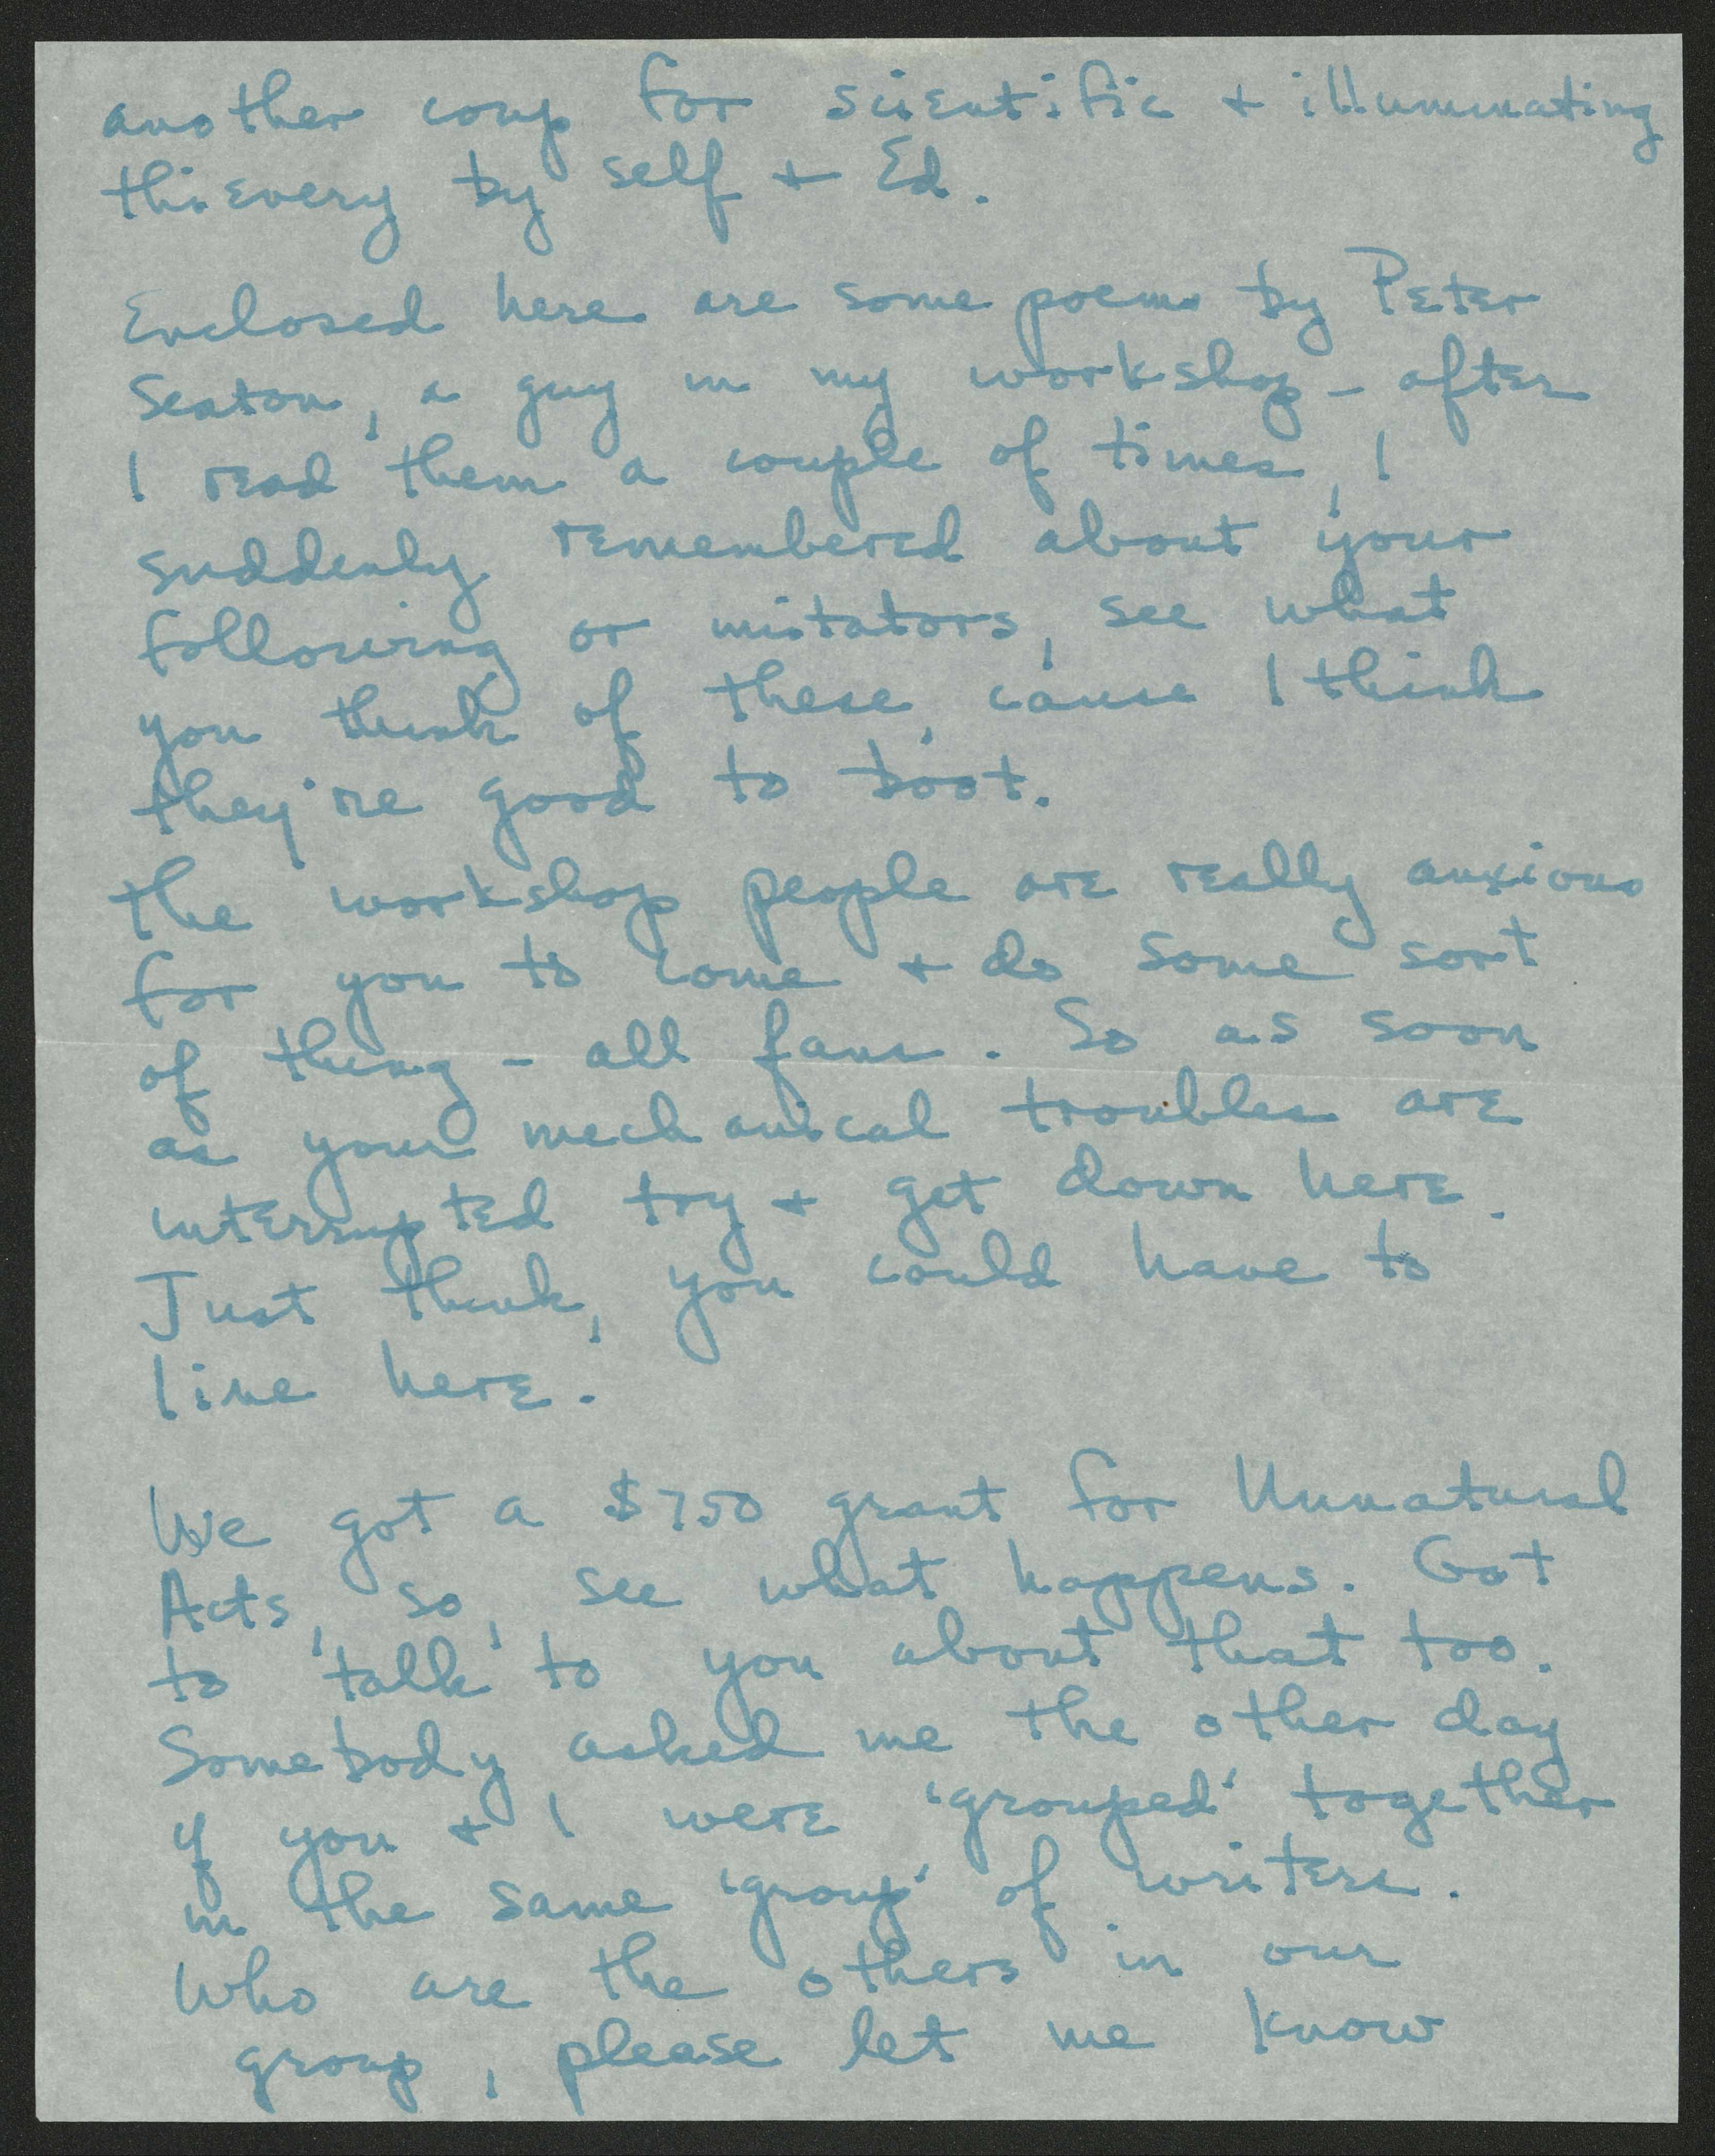 another coup for scientific + illuminating
thievery by self + Ed.
Enclosed here are some poems by Peter
Seaton, a guy in my workshop - after
I read them a couple of times, I
suddenly remembered about your
following or imitators, see what
you think of these, cause I think
they're good to boot.
the workshop people are really anxious
for you to come + do some sort
of thing - all fans. So as soon
as your mechanical troubles are
interrupted try + get down here.
Just think, you could have to
live here.
We got a $750 grant for Unnatural
Acts, so, see what happens. Got
to talk to you about that too.
Somebody asked me the other day
if you + I were 'grouped' together
in the same 'group' of writers.
Who are the others in our
group, please let me know